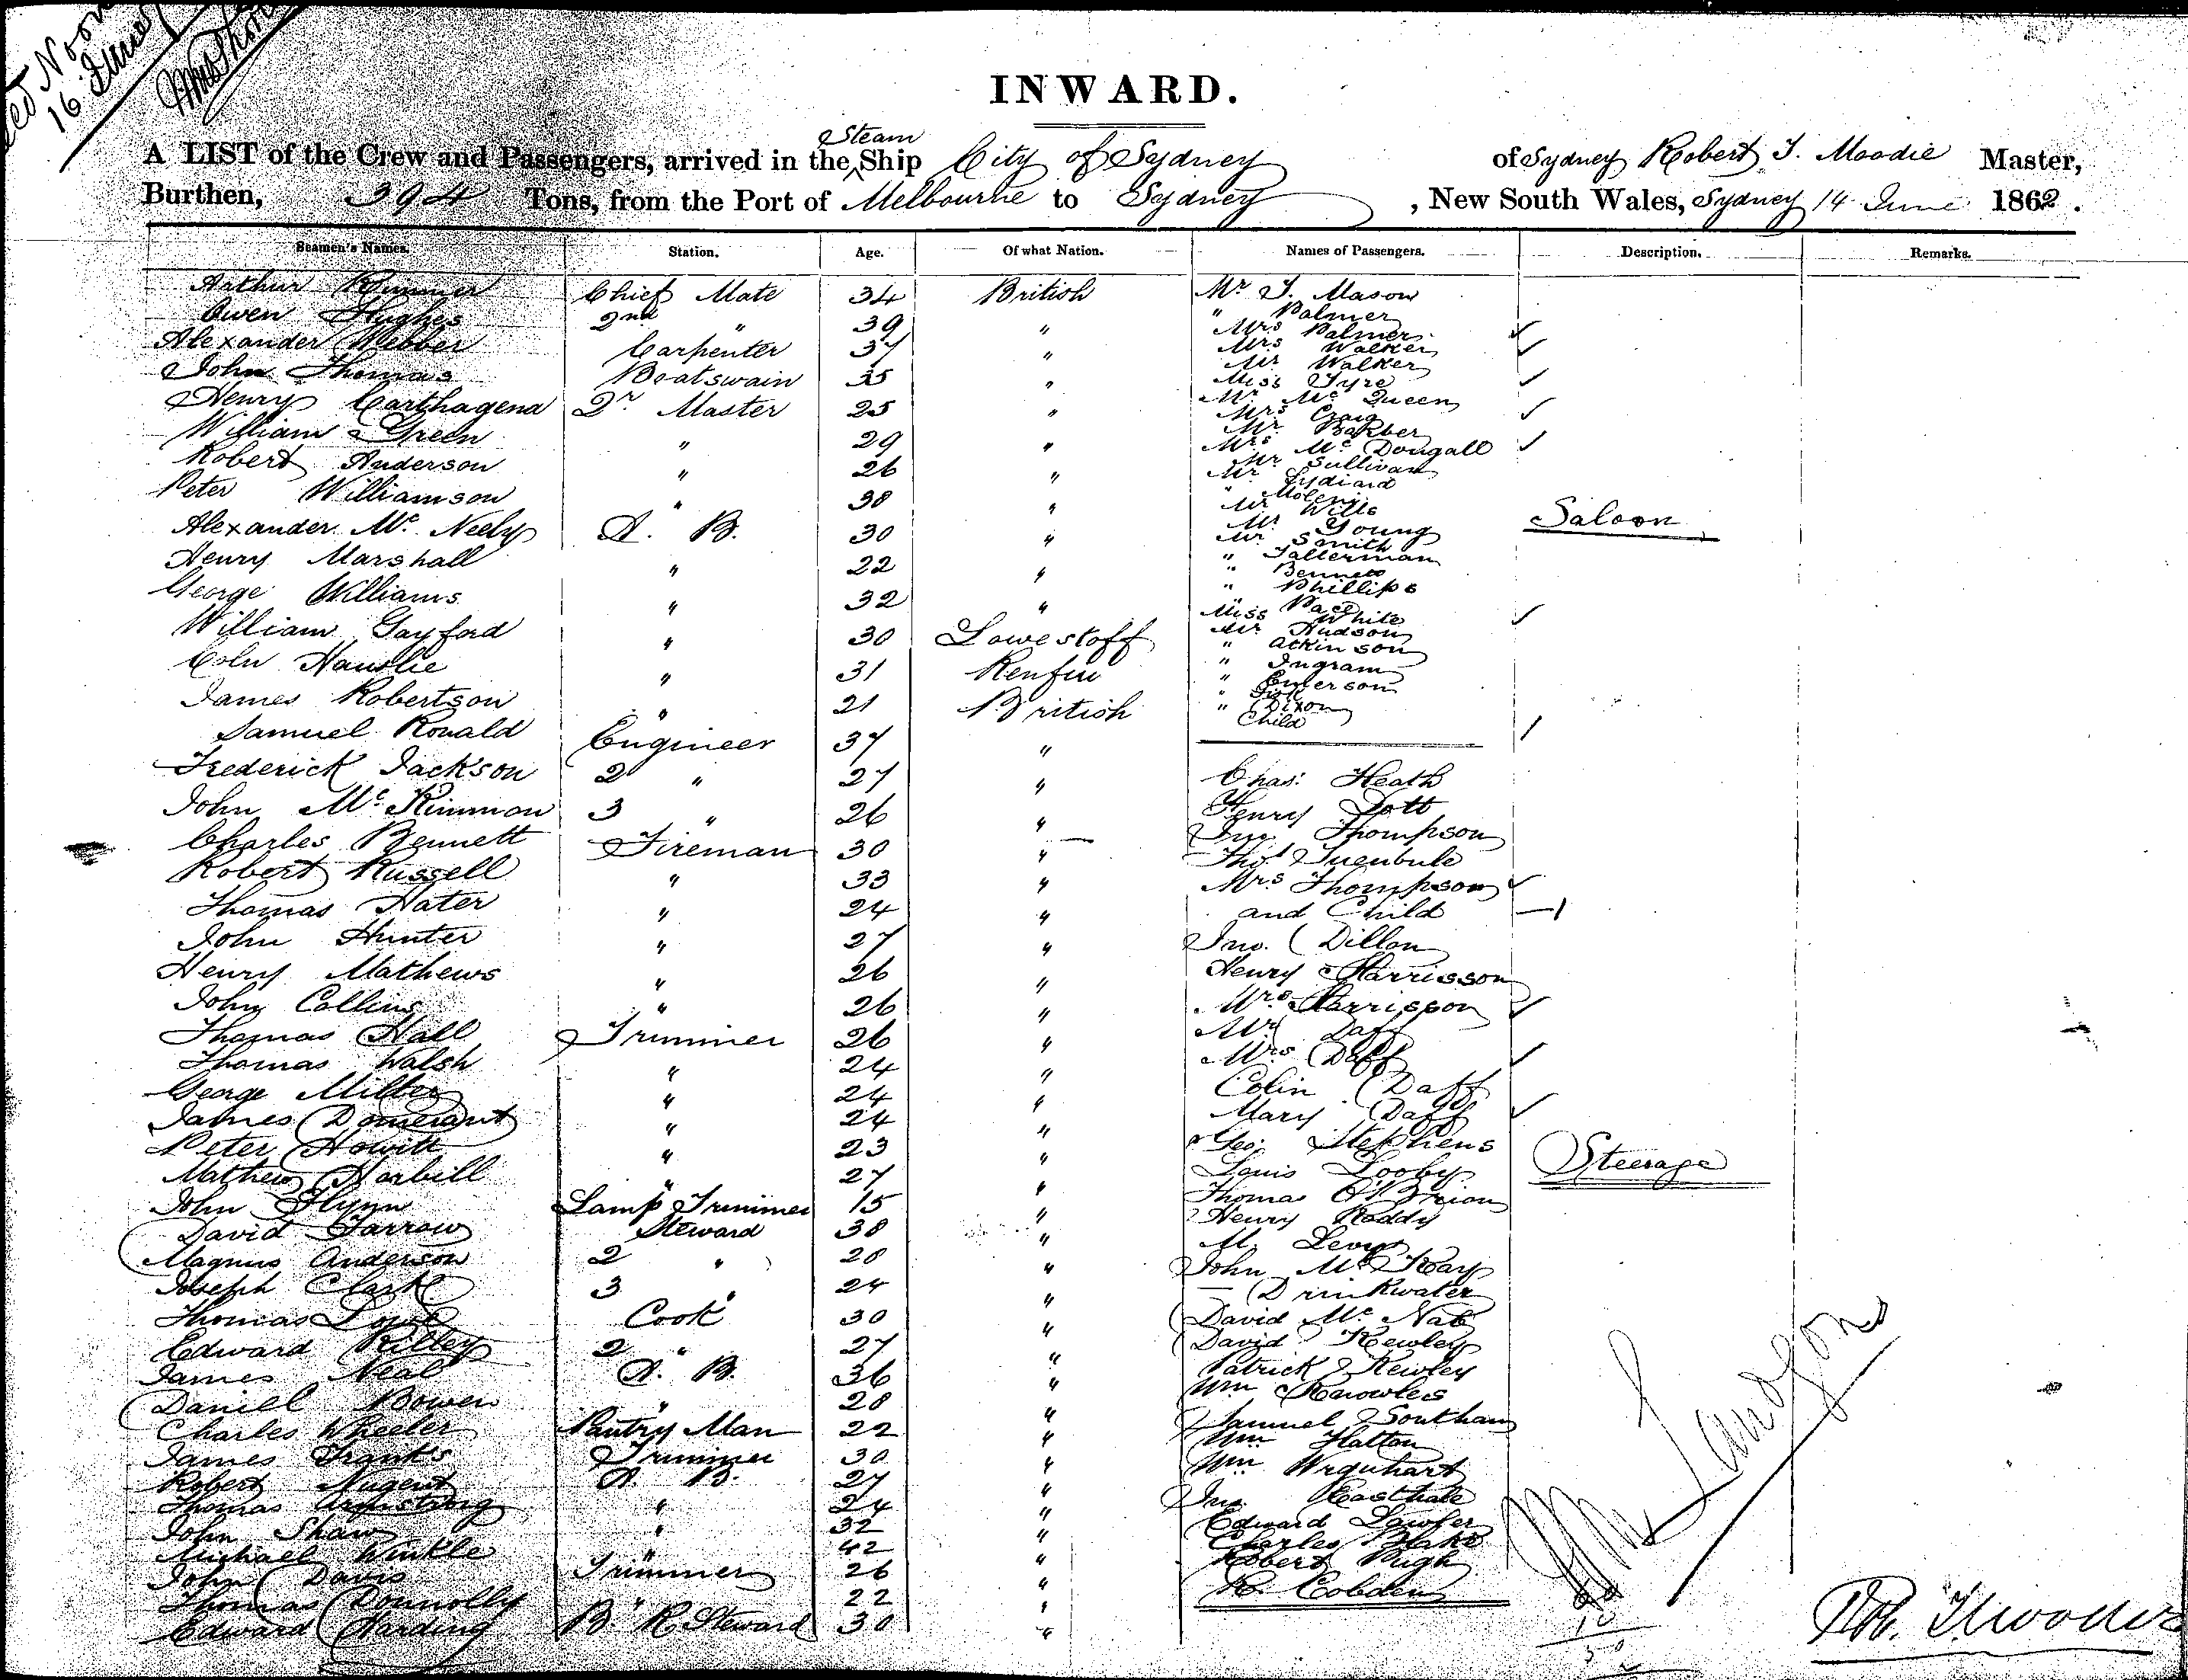 16 June
INWARD.
Steam
A LIST of the Crew and Passengers, arrived in the Ship City of Sydney of Sydney Robert T. Moodie Master,
Burthen, 394 Tons, from the Port of Melbourne to Sydney, New South Wales, Sydney 14 June 1862.
Seamen's Names. Station. Age. Of what Nation. Names of Passengers. Description. Remarks.
Arthur Rimmer Chief Mate 34 British
Owen Hughes 2nd " 39 "
Alexander Webber Carpenter 37 "
John Thomas Boatswain 35 "
Henry Carthagena Qr Master 25 "
William Green " 29 "
Robert Anderson " 26 "
Peter Williamson " 38 "
Alexander Mc Neely A. B. 30 "
Henry Marshall " 22 "
George Williams " 32 "
William Gayford " 30 Lowestoff
Coln " 31
James Robertson " 21 British
Samuel Ronald Engineer 37 "
Frederick Jackson 2 " 27 "
John Mc Kinnion 3 " 26 "
Charles Bennett Fireman 30 "
Robert Russell " 33 "
Thomas Hater " 24 "
John Hunter " 27 "
Henry Mathews " 26 "
John Collins " 26 "
Thomas Hall Trimmer 26 "
Thomas Walsh " 24 "
George Miller " 24 "
James " 24 "
Peter Howitt " 23 "
Mathew Harbill " 27 "
John Flynn Lamp Trimmer 15 "
David Farrow Steward 38 "
Magnus Anderson 2 " 28 "
Joseph Clark 3 " 24 "
Thomas Cook 30 "
Edward Rilley 2 " 27 "
James Neal A. B. 36 "
Daniel Bowen " 28 "
Charles Wheeler Pantry Man 22 "
James Franks Trimmer 30 "
Robert Nugent A. B. 27 "
Thomas Armstrong " 24 "
John Shaw " 32 "
Michael Winkle " 42 "
John Davis Trimmer 26 "
Thomas Donnolly " 22 "
Edward Harding B. R Steward 30 "
Mr J. Mason
" Palmer
Mrs Palmer
Mrs Walker
Mr Walker
Miss Tyre
Mr Mc Queen
Mrs Craig
Mr Barber
Mrs Mc Dougall
Mr Sullivan
Mr Lydiard
"
Mr Wills
Mr Young
Mr Smith
" Tallerman
" Bennett
" Phillips
" Pace
Miss White
Mr Hudson
" Atkinson
" Ingram
" Emerson
" Fisk
" Dixon
Child
Saloon
Chas. Heath
Henry Dott
Jno. Thompson
Thos
Mrs Thompson
and Child
Jno. Dillon
Henry Harrisson
Mrs Harrisson
Mr Daff
Mrs Daff
Colin Daff
Mary Daff
Geo. Stephens
Louis Looby
Thomas O'Brion
Henry Roddy
M. Levy
John Mc Kay
— Drinkwater
David Mc Nab
David Kewley
Patrick Kewley
Wm Knowles
Samuel Southam
Wm Hatton
Wm Urquhart
Jno.
Edward Lawler
Charles Blake
Robert Pugh
R. Cobden
Steerage
10